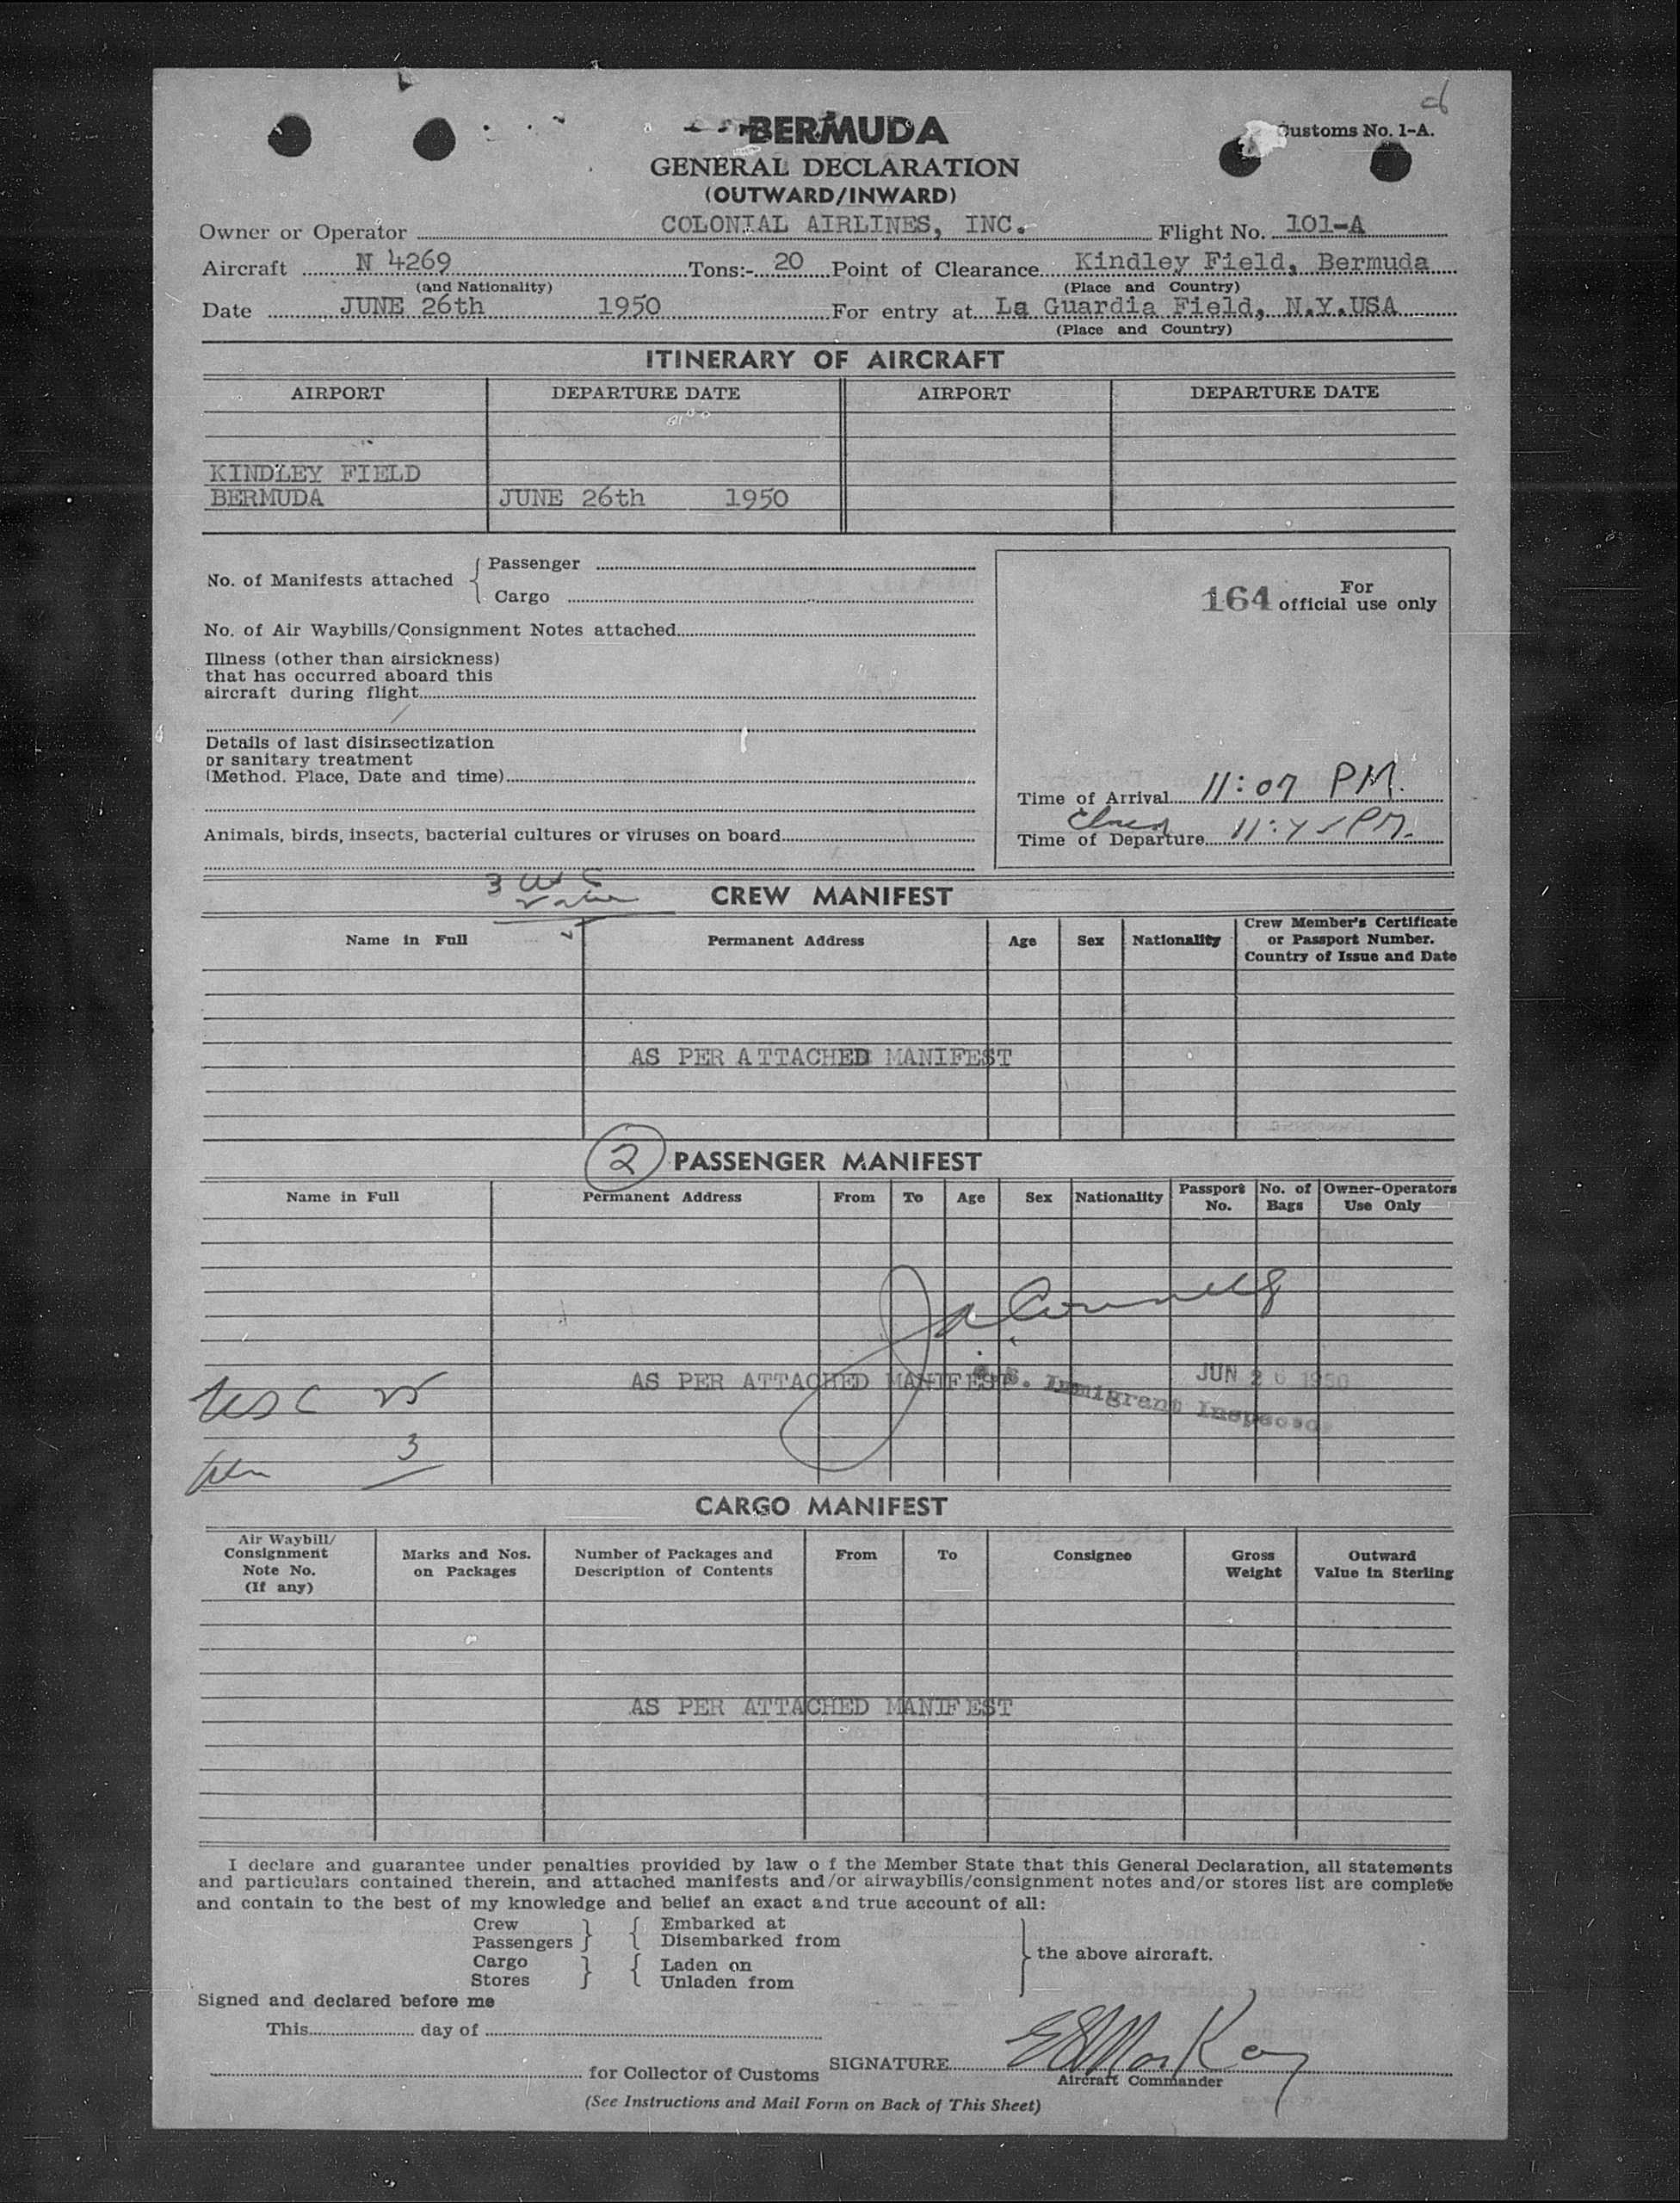 BERMUDA
Customs No. 1-A.
GENERAL DECLARATION
(OUTWARD/INWARD)
Owner or Operator COLONIAL AIRLINES, INC. Flight No. 101-A
Aircraft N 4269 Tons:- 20 Point of Clearance Kindley Field, Bermuda
(and Nationality) (Place and Country)
Date JUNE 26th 1950 For entry at La Guardia Field, N.Y.USA
(Place and Country)
ITINERARY OF AIRCRAFT
AIRPORT DEPARTURE DATE AIRPORT DEPARTURE DATE
KINDLEY FIELD
BERMUDA JUNE 26th 1950
No. of Manifests attached { Passenger
Cargo
164 For official use only
No. of Air Waybills/Consignment Notes attached
Illness (other than airsickness)
that has occurred aboard this
aircraft during flight
Details of last disinsectization
or sanitary treatment
(Method. Place, Date and time)
Time of Arrival 11:07 PM.
Animals, birds, insects, bacterial cultures or viruses on board
Time of Departure 11:45 PM.
3 USC
CREW MANIFEST
Name in Full Permanent Address Age Sex Nationality Crew Member's Certificate or Passport Number. Country of Issue and Date
AS PER ATTACHED MANIFEST
2 PASSENGER MANIFEST
Name in Full Permanent Address From To Age Sex Nationality Passport No. No. of Bags Owner-Operators Use Only
AS PER ATTACHED MANIFEST
JUN 26 1950
U.S. Immigrant Inspector
USC 25
3
CARGO MANIFEST
Air Waybill/ Consignment Note No. (If any) Marks and Nos. on Packages Number of Packages and Description of Contents From To Consignee Gross Weight Outward Value in Sterling
AS PER ATTACHED MANIFEST
I declare and guarantee under penalties provided by law o f the Member State that this General Declaration, all statements
and particulars contained therein, and attached manifests and/or airwaybills/consignment notes and/or stores list are complete
and contain to the best of my knowledge and belief an exact and true account of all:
Crew Embarked at
Passengers Disembarked from
the above aircraft.
Cargo Laden on
Stores Unladen from
Signed and declared before me
This day of
for Collector of Customs SIGNATURE E S MacKay
Aircraft Commander
(See Instructions and Mail Form on Back of This Sheet)